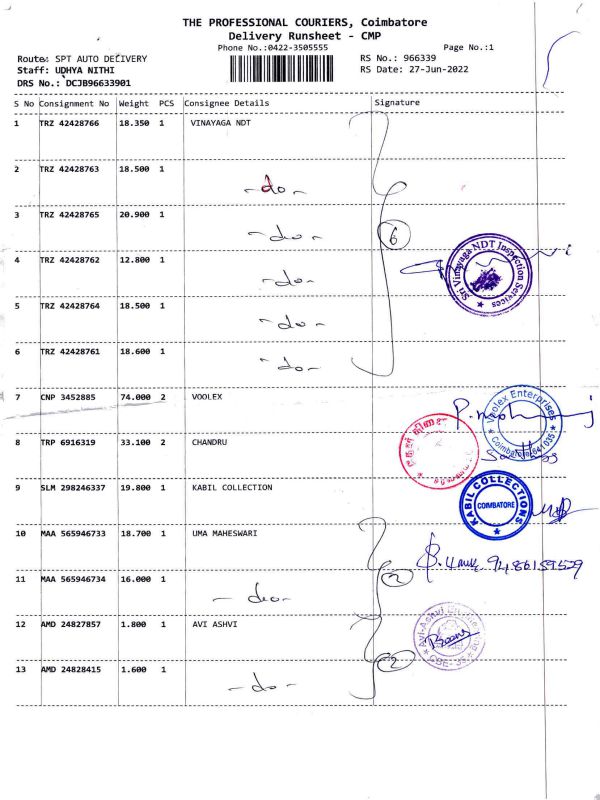 THE PROFESSIONAL COURIERS, Coimbatore
Delivery Runsheet - CMP
Phone No.:0422-3505555 Page No.:1
Route: SPT AUTO DELIVERY RS No.: 966339
Staff: UDHYA NITHI RS Date: 27-Jun-2022
DRS No.: DCJB96633901
S No Consignment No Weight PCS Consignee Details Signature
1 TRZ 42428766 18.350 1 VINAYAGA NDT
2 TRZ 42428763 18.500 1 -do-
3 TRZ 42428765 20.900 1 -do-
6
4 TRZ 42428762 12.800 1 -do-
Sri Vinayaga NDT Inspection Services
5 TRZ 42428764 18.500 1 -do-
6 TRZ 42428761 18.600 1 -do-
7 CNP 3452885 74.000 2 VOOLEX
Voolex Enterprises
Coimbatore-641035
8 TRP 6916319 33.100 2 CHANDRU
9 SLM 298246337 19.800 1 KABIL COLLECTION
KABIL COLLECTIONS
COIMBATORE
10 MAA 565946733 18.700 1 UMA MAHESWARI
11 MAA 565946734 16.000 1 -do- 2
12 AMD 24827857 1.800 1 AVI ASHVI
Avi-Ashvi
CBE-35
2
13 AMD 24828415 1.600 1 -do-